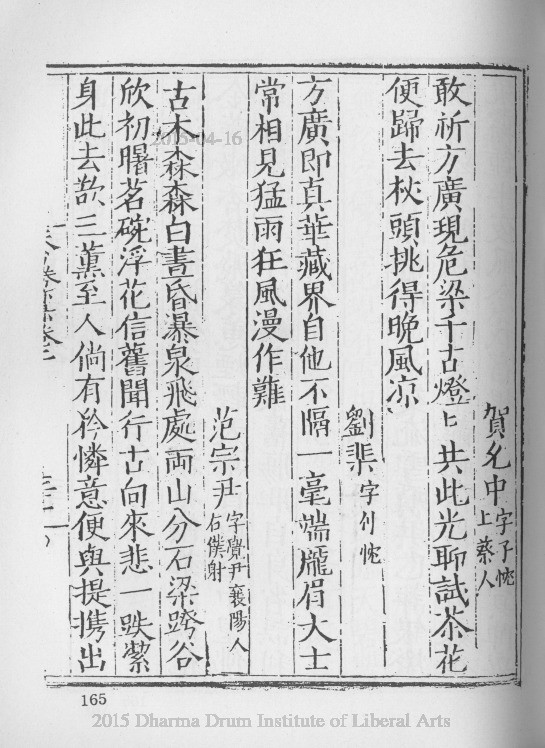 賀允中字子忱上蔡人
敢祈方廣現危梁千古燈〻共此光聊試茶花
便歸去杖頭挑得晚風凉
劉棐字仲忱
方廣即真華藏界自他不隔一毫端龐眉大士
常相見猛雨狂風漫作難
范宗尹字覺民襄陽人右僕射
古木森森白晝昏瀑泉飛處両山分石梁跨谷
欣初曙茗碗浮花信舊聞行古向來悲一跌縈
身此去歆三薫至人倘有矜憐意便與提携出
165
2015-04-16
2015 Dharma Drum Institute of Liberal Arts